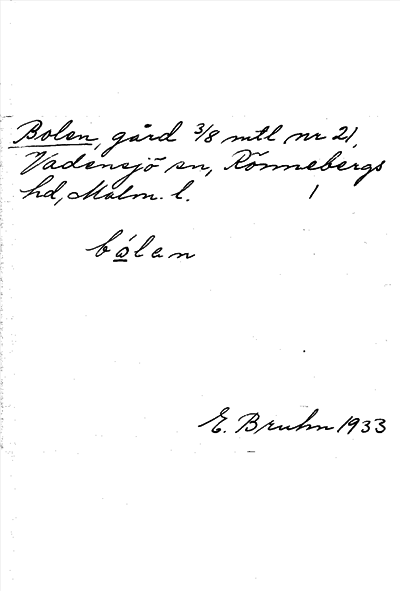 Bolen, gård 3/8 mtl nr 21,
Vadensjö sn, Rönnebergs
hd, Malm. l. 1
bólen
E. Bruhn 1933